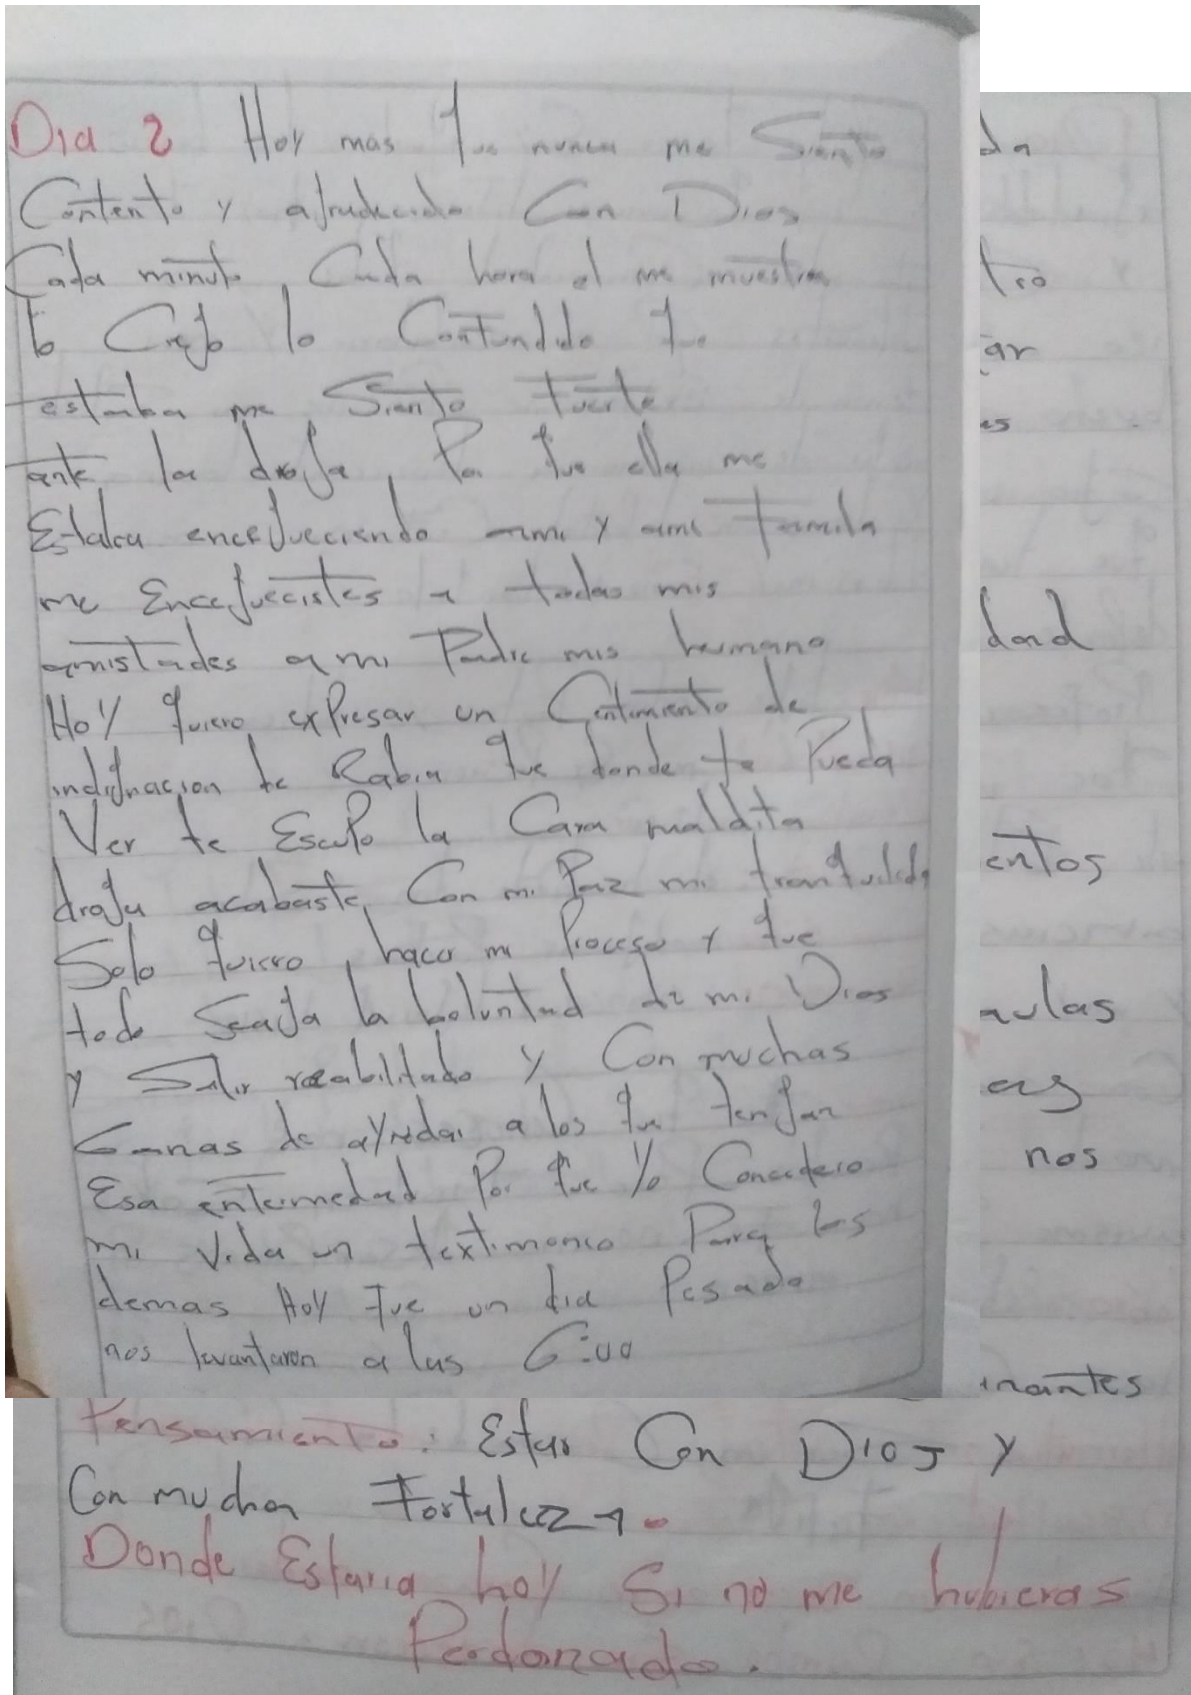 Dia 2 Hoy mas que nunca me Siento
Contento y agradecido Con Dios
Cada minuto, Cada hora el me muestra
lo lo Confundido que
estaba me Siento Fuerte
ante la droga, Por que ella me
Estaba encegueciendo ami y ami Familia
me Enceguecistes a todas mis
amistades a mi Padre mis hermano
Hoy quiero expresar un Centimiento de
indignacion de Rabia que donde te Pueda
Ver te Escupo la Cara maldita
droga acabaste Con mi Paz mi tranquilidad
Solo quiero, hacer mi Proceso y que
todo Seaga la boluntad de mi Dios
y Salir reabilitado y Con muchas
Ganas de ayudar a los que tengan
Esa enfermedad Por que yo Concidero
mi Vida un textimonio Para los
demas Hoy Fue un dia Pesado
nos levantaron a las 6:00
da
tro
ar
es
dad
entos
aulas
as
nos
inantes
Pensamiento: Estar Con Dios y
Con mucha Fortaleza.
Donde Estaria hoy Si no me hubieras
Perdonado.